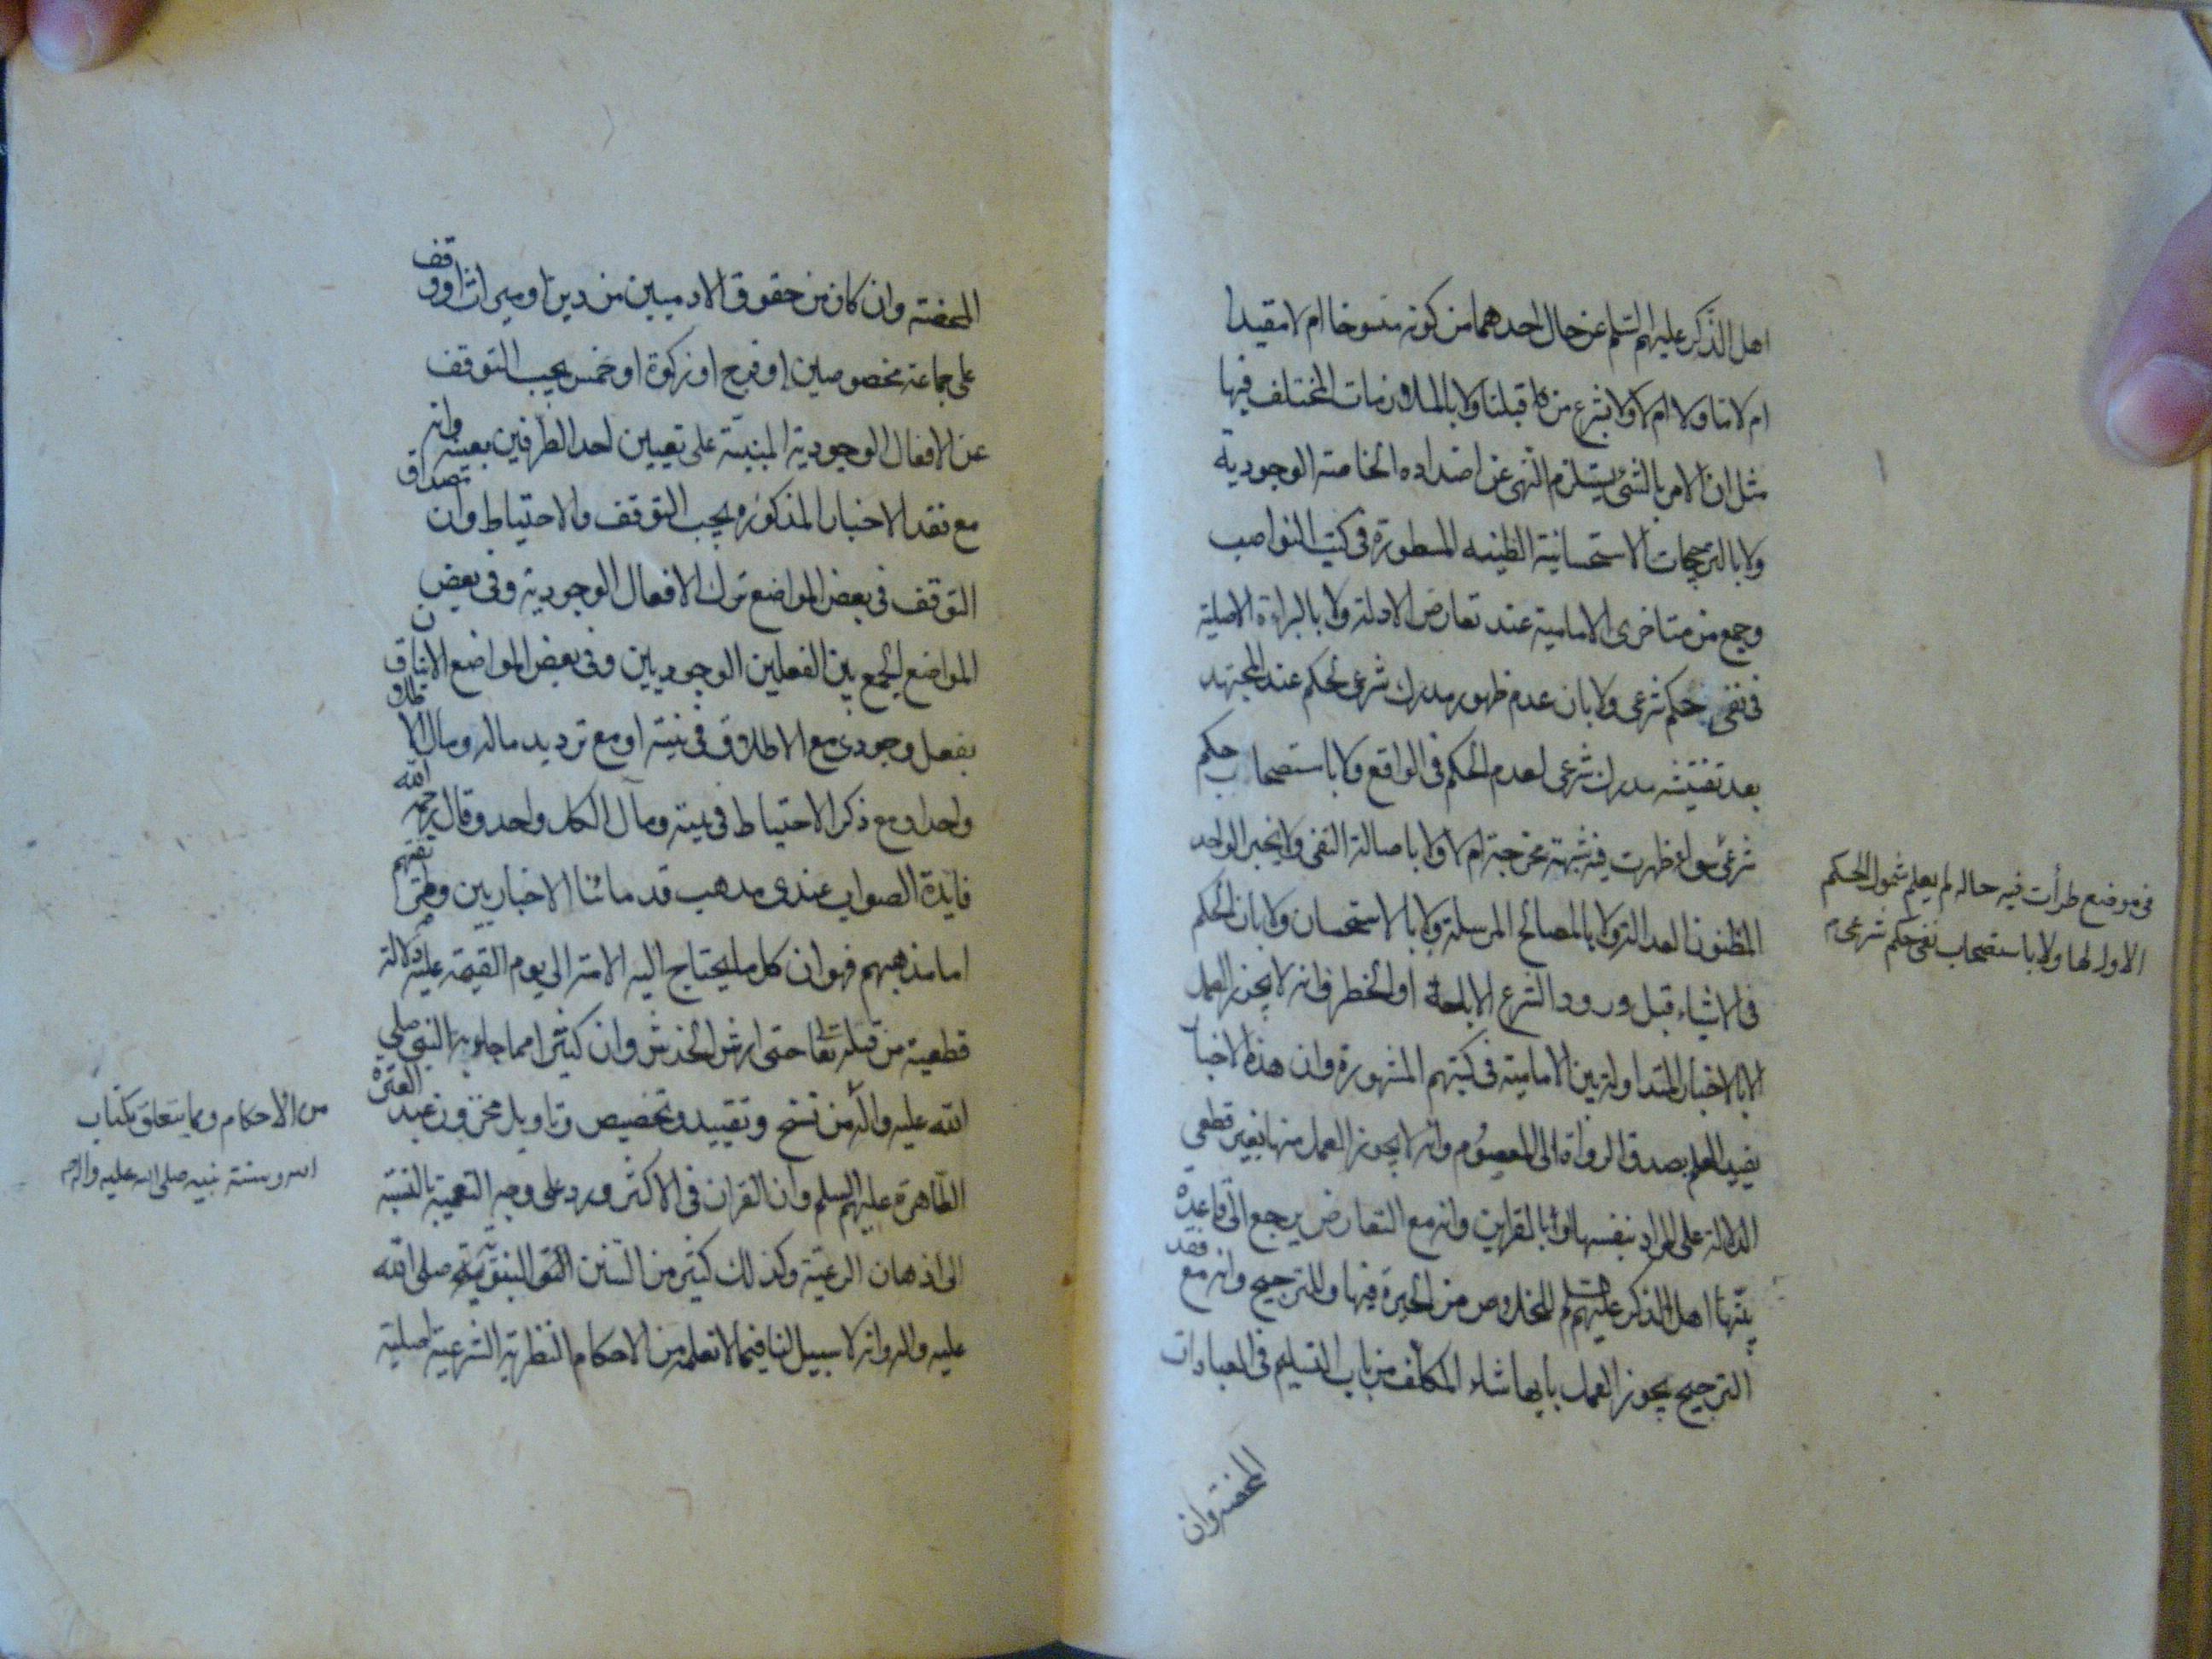 اهل الذكر عليهم السلم عن حال احدهما من كونه منسوخا ام لا مقيدا
ام لا ماولا ام لا ولا بشرع من قبلنا ولا بالملازمات المختلف فيها
مثل ان الامر بالشئ يستلزم النهى عن اضداده الخاصة الوجودية
ولا بالترجيحات الاستحسانية الظنيه المسطورة فى كتب النواصب
وجمع من متاخرى الامامية عند تعارض الادلة ولا بالبراءة الاصلية
فى نفى حكم شرعى ولا بان عدم ظهور مدرك شرعى لحكم عند المجتهد
بعد تفتيشه مدرك شرعى لعدم الحكم فى الواقع ولا باستصحاب حكم
شرعى سواء ظهرت فيه شبهة مخرجة ام لا ولا باصالة النفى ولا بخبر الواحد
فى موضع طرأت فيه حاله لم يعلم شمول الحكم
الاول لها ولا باستصحاب نفى حكم شرعى
المظنون العدالة ولا بالمصالح المرسلة ولا بالاستحسان ولا بان الحكم
فى الاشياء قبل ورود الشرع الاباحة او الخطر وانه لا يجوز العمل
الا بالاخبار المتداولة بين الامامية فى كتبهم المشهورة وان هذه الاخبا
يفيد العلم بصدق الرواة الى المعصوم وانه لا يجوز العمل منها بغير قطعى
الدلالة على المراد بنفسها او بالقراين وانه مع التعارض يرجع الى قاعدة
بيّنها اهل الذكر عليهم السلم للخلاص من الحيرة فيها والترجيح وانه مع فقد
الترجيح يجوز العمل بأيها شاء المكلف من باب التسليم فى العبادات
المحضة وان
المحضة وان كان من حقوق الادميين من دين او ميراث او وقف
على جماعة مخصوصين او فرج او زكوة او خمس يجب التوقف
عن الافعال الوجودية المبنية على تعيين احد الطرفين بعينه وانه
مع فقد الاخبار المذكوره يجب التوقف والاحتياط وان تصداق
التوقف فى بعض المواضع ترك الافعال الوجودية وفى بعض
المواضع الجمع بين الفعلين الوجوديين وفى بعض المواضع الاتيان
بفعل وجودى مع الاطلاق فى نيته او مع ترديد ماله ومال الاطلاق
واحد او مع ذكر الاحتياط فى نيته ومآل الكل واحد وقال رحمه الله
فايدة الصواب عندى مذهب قدمائنا الاخباريين وطريقتهم
اما مذهبهم فهو ان كل ما يحتاج اليه الامة الى يوم القيمة عليه دلالة
قطعية من قبله تعا حتى ارش الخدش وان كثيرا مما جاء به النبى صلى
من الاحكام ومما يتعلق بكتاب
الله وسنة نبيه صلى الله عليه واله
الله عليه واله من نسخ وتقييد وتخصيص وتاويل مخزون عند العترة
الطاهرة عليهم السلم وان القران فى الاكثر ورد على وجه التعمية بالنسبة
الى اذهان الرعية وكذلك كثير من السنن النبوية صلى الله
عليه واله وانه لا سبيل لنا فيما لا نعلمه من الاحكام النظرية الشرعية اصلية